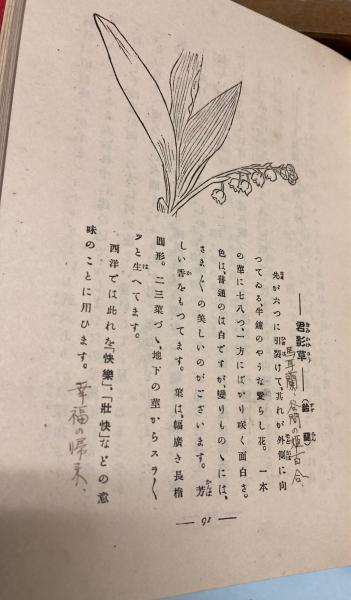 ――君影草――（鈴蘭）
馬耳蘭 谷間の姫百合
先が六つに引裂けて、其れが外側に向
つてゐる、牛鐘のやうな愛らし花。一本
の莖に七八つ、一方にばかり咲く面白さ。
色は、普通のは白ですが、變りものゝには、
さま〲の美しいのがございます。芳
しい香をもつてます。葉は、幅廣き長楕
圓形。二三葉づゝ、地下の莖からスラ〱
ッと生へてます。
西洋では此れを「快樂」、「壯快」などの意
味のことに用ひます。
幸福の帰来、
― 91 ―